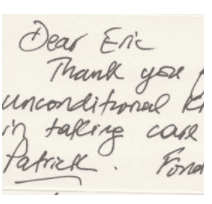 Dear Eric
Thank you
unconditional
in talking care
Patrick. Fond